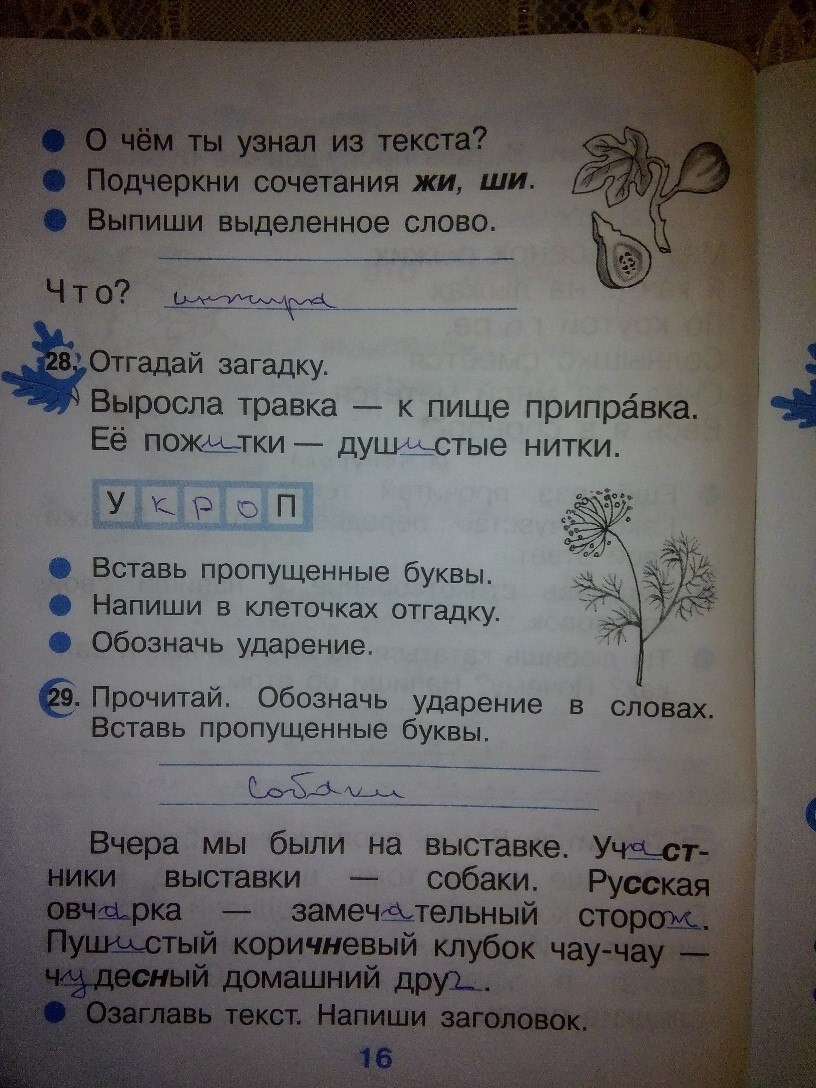 О чём ты узнал из текста?
Подчеркни сочетания жи, ши.
Выпиши выделенное слово.
Что? инжира
28. Отгадай загадку.
Выросла травка — к пище припра́вка.
Её пожитки — душистые нитки.
УКРОП
Вставь пропущенные буквы.
Напиши в клеточках отгадку.
Обозначь ударение.
29. Прочитай. Обозначь ударение в словах.
Вставь пропущенные буквы.
Собаки
Вчера мы были на выставке. Участ-
ники выставки — собаки. Русская
овчарка — замечательный сторож.
Пушистый коричневый клубок чау-чау —
чудесный домашний друг.
Озаглавь текст. Напиши заголовок.
16